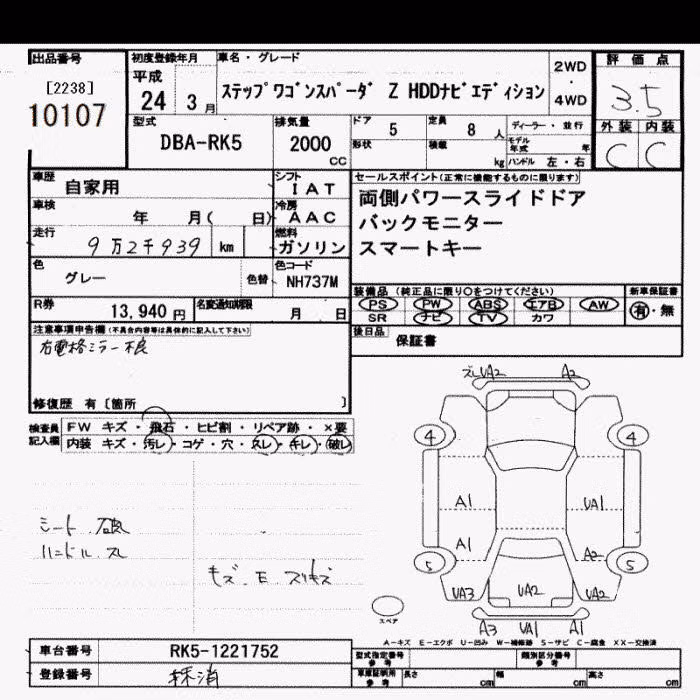 出品番号 初度登録年月 車名・グレード 2WD・4WD 評価点
[2238] 10107 平成 24 3月 ステップワゴンスパーダ Z HDDナビエディション 3.5
型式 DBA-RK5 排気量 2000 CC ドア 5 定員 8人 ディーラー・並行 外装 C 内装 C
形状 積載 kg モデル年式 年 ハンドル 左・右
車歴 自家用 シフト IAT セールスポイント(正常に機能するものに限ります)
車検 年 月( 日) 冷房 AAC 両側パワースライドドア
走行 9万2千939 km 燃料 ガソリン バックモニター
スマートキー
色 グレー 色替 色コード NH737M
装備品 (純正品に限り○をつけてください) 新車保証書
R券 13,940円 名変通知期限 月 日 PS PW ABS エアB AW 有・無
SR ナビ TV カワ
注意事項申告欄(不具合内容等は具体的に記入して下さい) 後日品 保証書
右電格ミラー不良
修復歴 有〔箇所 〕
検査員記入欄 FW キズ・飛石・ヒビ割・リペア跡・×要
内装 キズ・汚レ・コゲ・穴・スレ・キレ・破レ
ズレUA2 A2
4 4
A1 UA1
A1 A2
5 5
UA3 UA2 UA2
A3 UA1 A1
シート
ハンドル スレ
キズ・E・スリキズ
スペア
A-キズ E-エクボ U-凹み W-補修跡 S-サビ C-腐食 XX-交換済
車台番号 RK5-1221752 型式指定番号 参考 類別区分番号 参考
登録番号 抹消 車庫証明用 参考 長さ cm 幅 cm 高さ cm